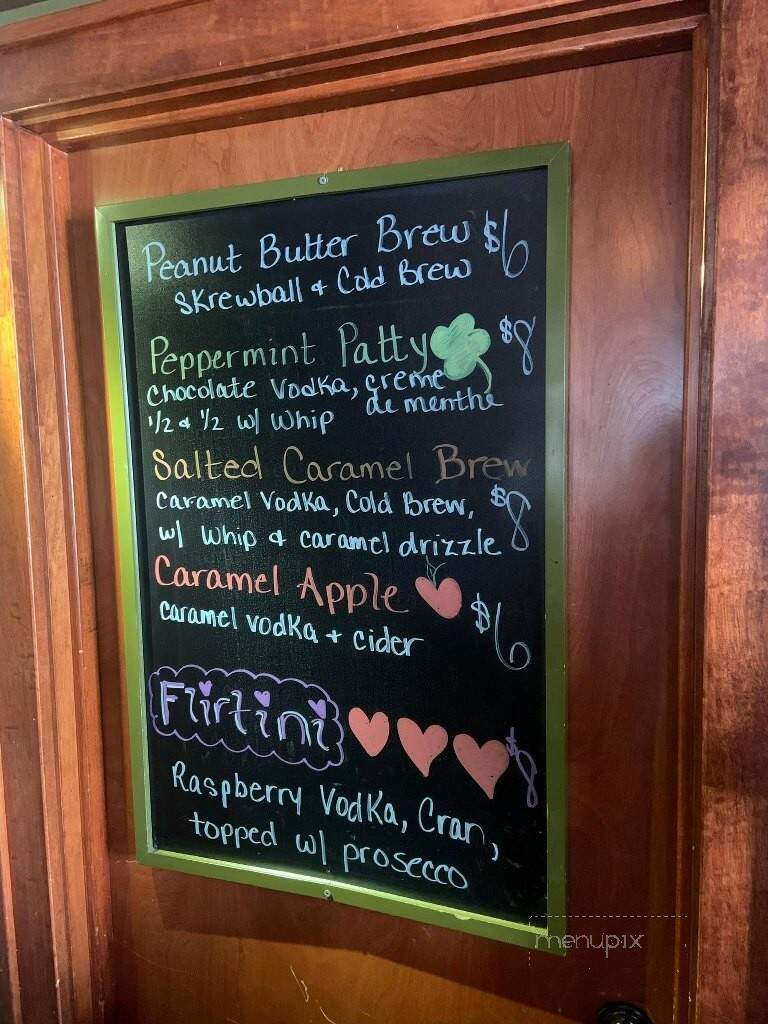 Peanut Butter Brew $6
Skrewball & Cold Brew
Peppermint Patty $8
Chocolate Vodka, creme
de menthe
1/2 & 1/2 w/ Whip
Salted Caramel Brew
Caramel Vodka, Cold Brew, $8
w/ Whip & caramel drizzle
Caramel Apple
$6
caramel vodka + cider
Flirtini $8
Raspberry Vodka, Cran,
topped w/ prosecco
menupix